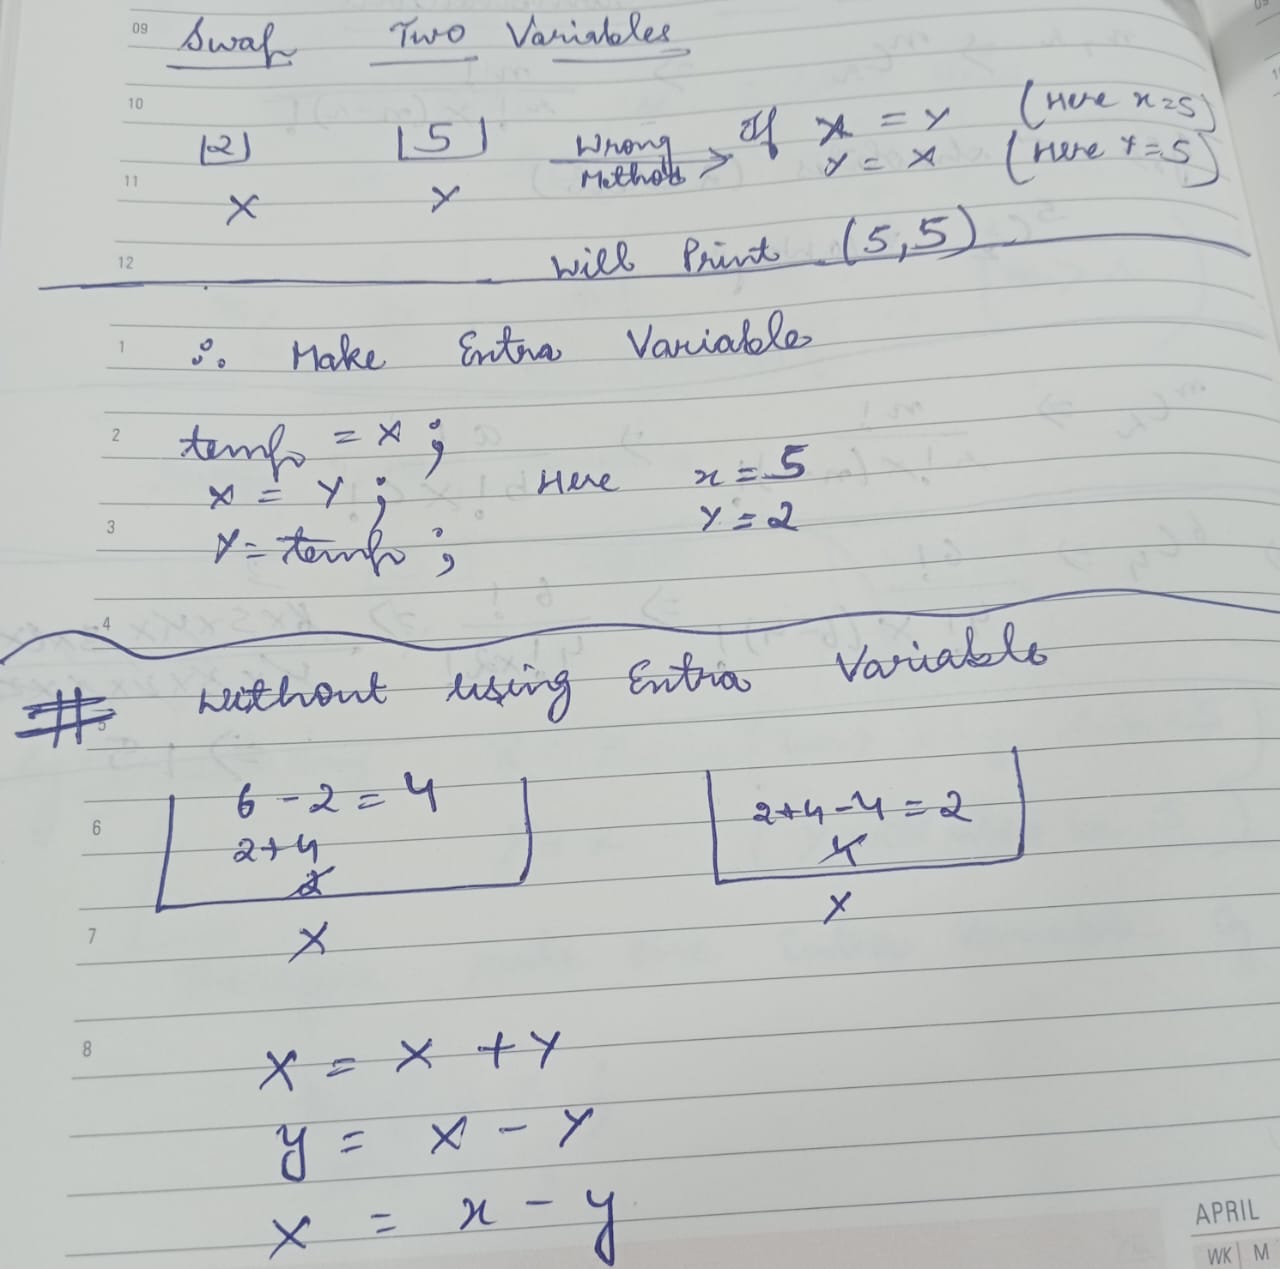 09 Swap Two Variables
10
|2| |5| Wrong Method > If X = Y (Here x=5)
Y = X (Here Y=5)
11
X Y
12 Will Print (5,5)
1 ∴ Make Extra Variable
2 temp = X ;
X = Y ; Here x = 5
3 Y = temp ; Y = 2
4
# without using Extra Variable
5
6 - 2 = 4 2+4-4 = 2
6 2+4 4
2
X X
7
8 X = X + Y
y = X - Y
X = x - y
APRIL
WK M